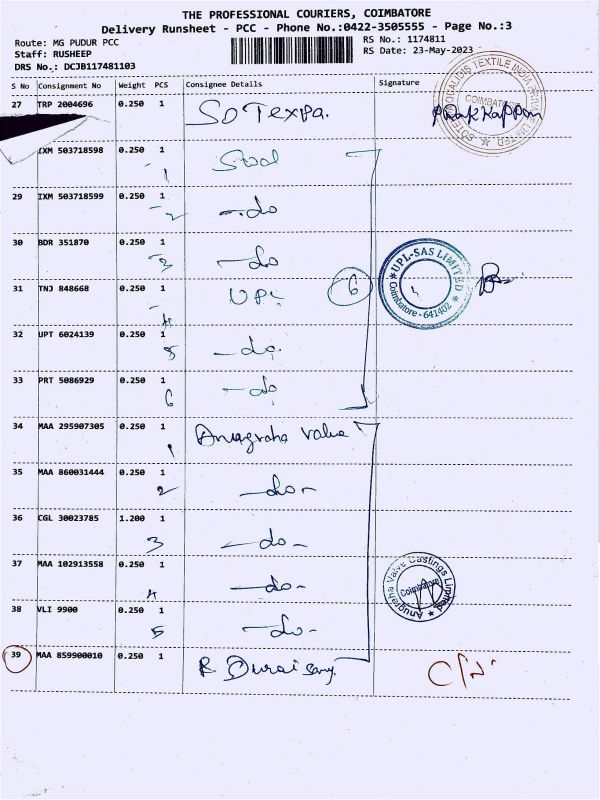 THE PROFESSIONAL COURIERS, COIMBATORE
Delivery Runsheet - PCC - Phone No.:0422-3505555 - Page No.:3
Route: MG PUDUR PCC
RS No.: 1174811
Staff: RUSHEEP
RS Date: 23-May-2023
DRS No.: DCJB117481103
S No Consignment No Weight PCS Consignee Details Signature
27 TRP 2004696 0.250 1
SOTEXPA QUALIDIS TEXTILE INDIA COIMBATORE
IXM 503718598 0.250 1
1
29 IXM 503718599 0.250 1 -do
2
30 BDR 351870 0.250 1 -do
3
UPL-SAS LIMITED Coimbatore - 641402
31 TNJ 848668 0.250 1 UPL 6
4
32 UPT 6024139 0.250 1 -do.
5
33 PRT 5086929 0.250 1 -do
6
34 MAA 295907305 0.250 1 Anugraha Valve
1
35 MAA 860031444 0.250 1 -do-
2
36 CGL 30023785 1.200 1 -do-
3
37 MAA 102913558 0.250 1 -do-
4
Anugraha Valve Castings Limited Coimbatore
38 VLI 9900 0.250 1 -do-
5
39 MAA 859900010 0.250 1 R Duraisamy C/N